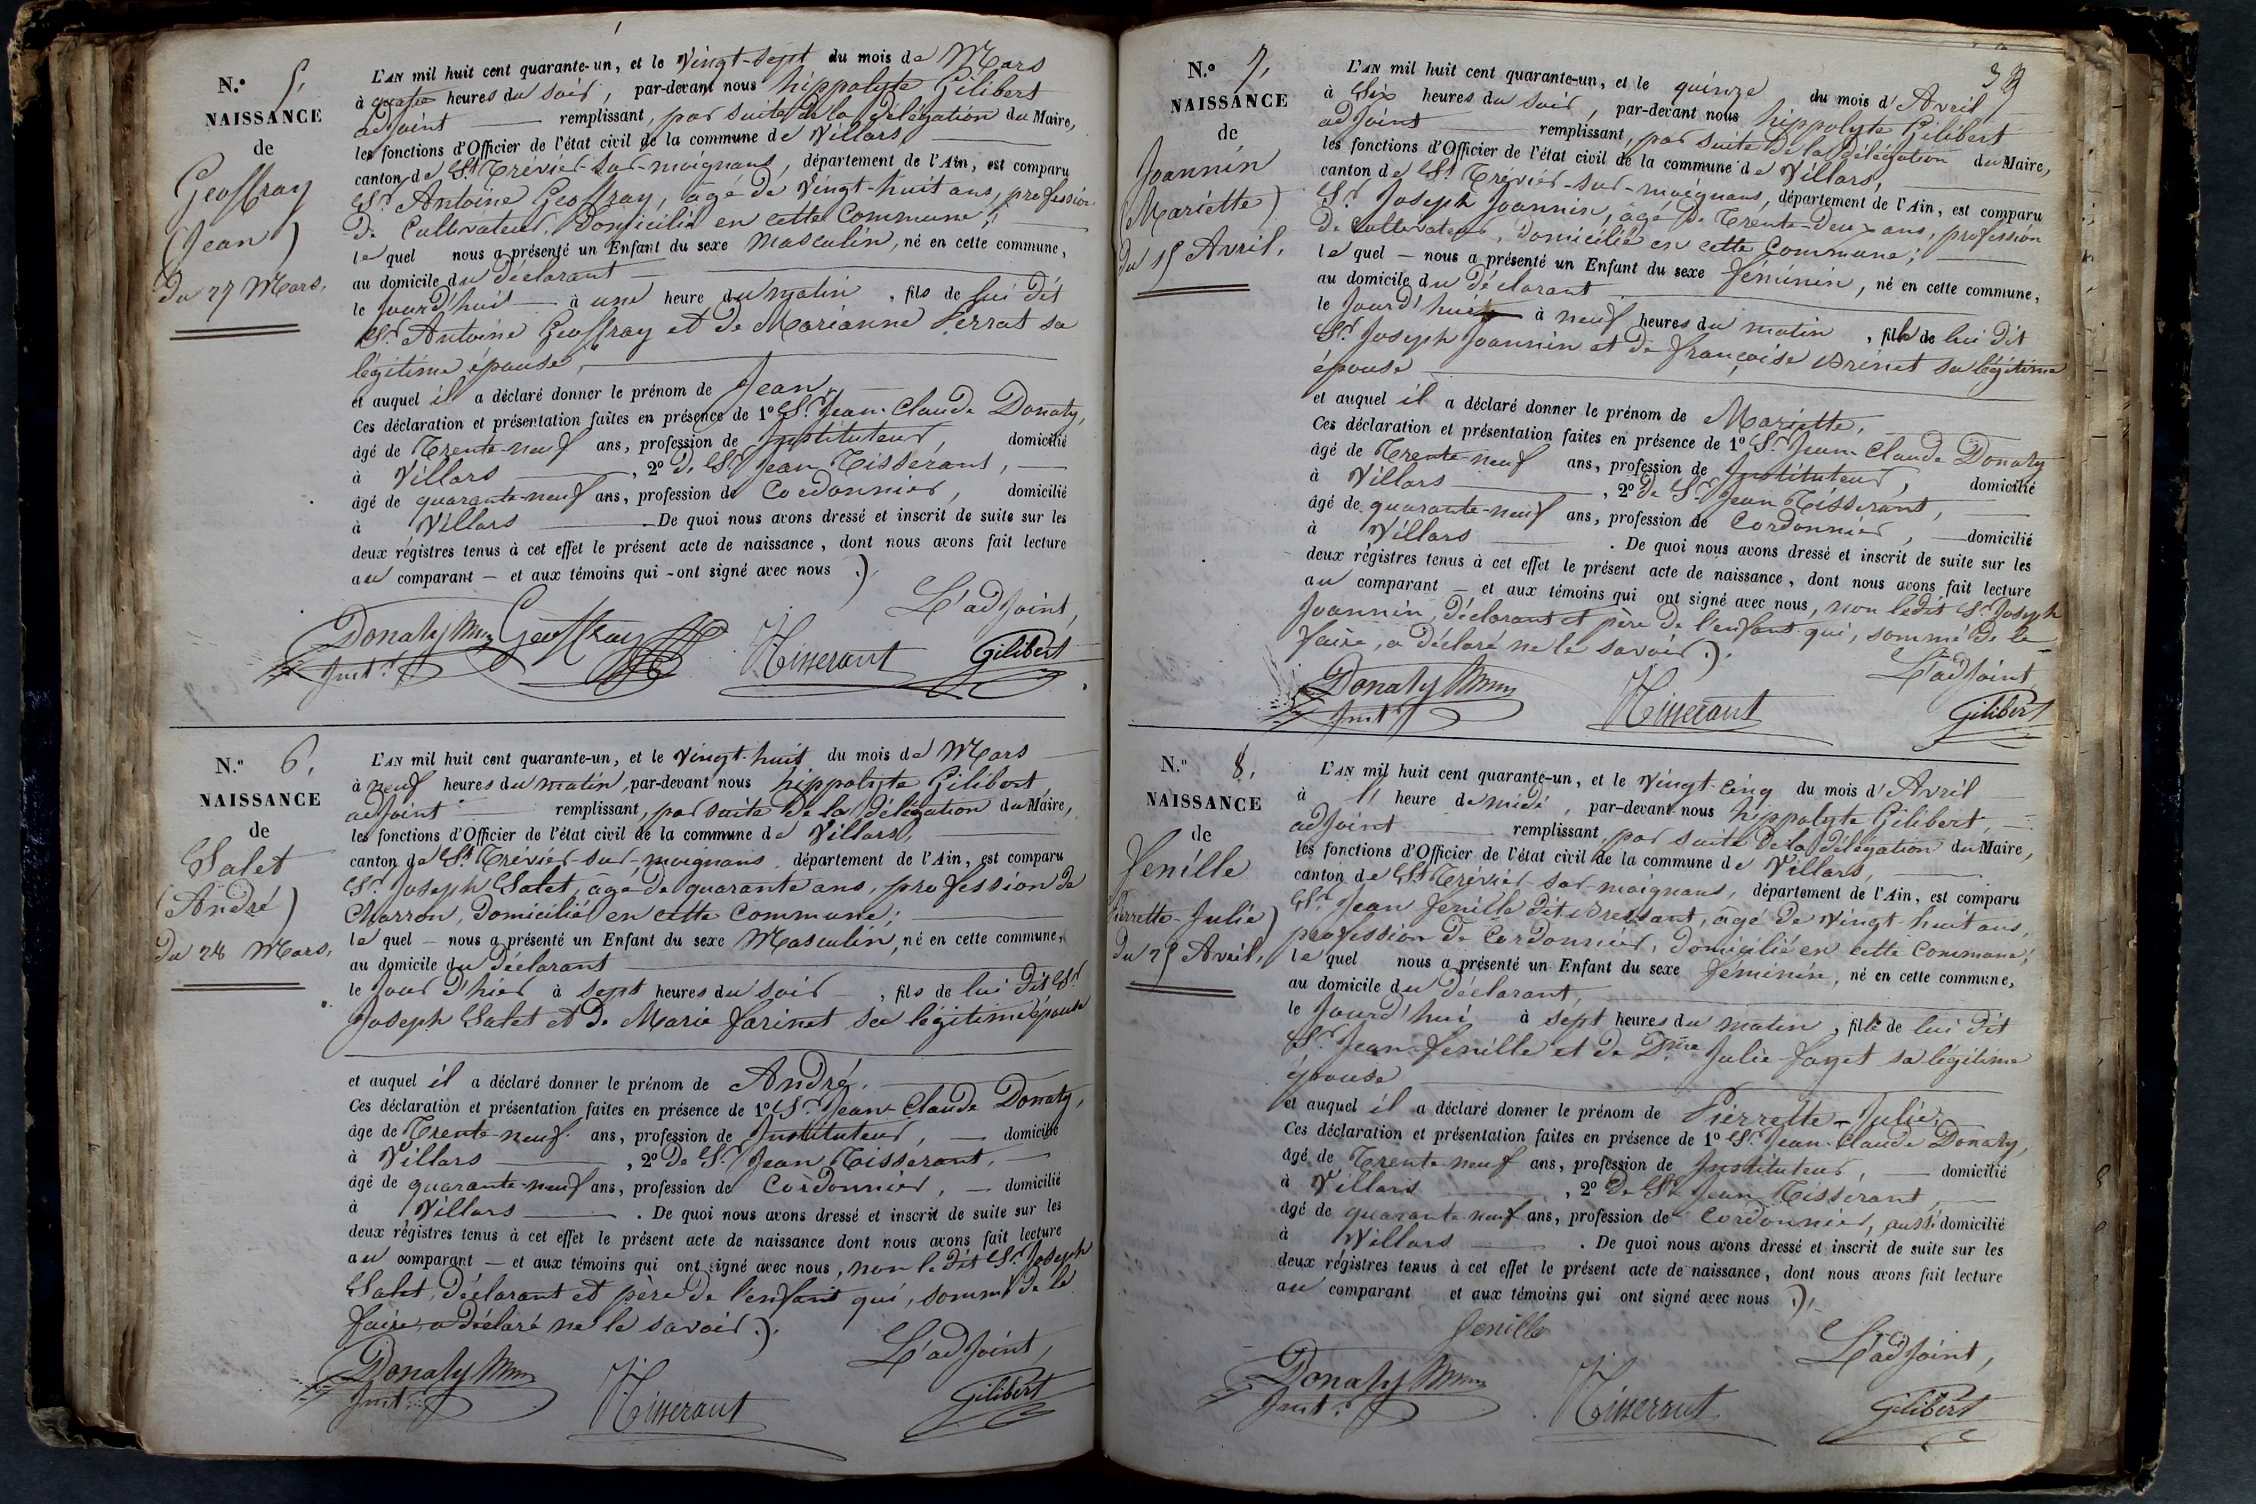 N.° 5.
NAISSANCE
de
Geoffray
(Jean)
du 27 Mars.
L'AN mil huit cent quarante-un, et le Vingt-sept du mois de Mars
à quatre heures du soir, par-devant nous hippolyte Gilibert
adjoint remplissant, par suite de la délégation du Maire,
les fonctions d'Officier de l'état civil de la commune de Villars,
canton de St Trévier-sur-moignans, département de l'Ain, est comparu
Sr. Antoine Geoffray, âgé de Vingt-huit ans, profession
de Cultivateur, Domicilié en cette Commune;
le quel nous a présenté un Enfant du sexe Masculin, né en cette commune,
au domicile du déclarant
le jourd'hui à une heure du matin, fils de lui dit
Sr. Antoine Geoffray et de Marianne Ferrat sa
légitime épouse,
et auquel il a déclaré donner le prénom de Jean,
Ces déclaration et présentation faites en présence de 1° Sr. Jean-Claude Donaty,
âgé de Trente-neuf ans, profession de Instituteur, domicilié
à Villars, 2° de Sr. Jean Tisserant,
âgé de quarante-neuf ans, profession de Cordonnier, domicilié
à Villars. De quoi nous avons dressé et inscrit de suite sur les
deux régistres tenus à cet effet le présent acte de naissance, dont nous avons fait lecture
au comparant — et aux témoins qui - ont signé avec nous.).
L'adjoint,
Donaty Geoffray Tisserant Gilibert
Inst.r
N.° 6.
NAISSANCE
de
Salet
(André)
du 28 Mars.
L'AN mil huit cent quarante-un, et le Vingt-huit du mois de Mars
à neuf heures du matin, par-devant nous hippolyte Gilibert
adjoint remplissant, par suite de la délégation du Maire,
les fonctions d'Officier de l'état civil de la commune de Villars,
canton de St Trévier-sur-moignans département de l'Ain, est comparu
Sr. Joseph Salet, âgé de quarante ans, profession de
Charron, Domicilié en cette Commune;
le quel — nous a présenté un Enfant du sexe Masculin, né en cette commune,
au domicile du déclarant
le jour d'hier à sept heures du soir, fils de lui dit Sr
Joseph Salet et de Marie Farinet sa légitime épouse
et auquel il a déclaré donner le prénom de André.
Ces déclaration et présentation faites en présence de 1° Sr. Jean-Claude Donaty,
âge de Trente-neuf ans, profession de Instituteur, — domicilié
à Villars, 2° de Sr. Jean Tisserant,
âgé de quarante-neuf ans, profession de Cordonnier, — domicilié
à Villars. De quoi nous avons dressé et inscrit de suite sur les
deux régistres tenus à cet effet le présent acte de naissance dont nous avons fait lecture
au comparant — et aux témoins qui ont signé avec nous, non le dit Sr. Joseph
Salet, Déclarant et père de l'enfant qui, sommé de le
faire, a déclaré ne le savoir.).
L'adjoint,
Donaty Tisserant Gilibert
Inst.r
N.° 7.
NAISSANCE
de
Joannin
(Mariette)
du 15 Avril.
L'AN mil huit cent quarante-un, et le quinze du mois d'Avril
à Six heures du soir, par-devant nous hippolyte Gilibert
adjoint remplissant, par suite de la délégation du Maire,
les fonctions d'Officier de l'état civil de la commune de Villars,
canton de St Trévier-sur-moignans, département de l'Ain, est comparu
Sr. Joseph Joannin, âgé de Trente-Deux ans, profession
de Cultivateur, Domicilié en cette Commune;
le quel — nous a présenté un Enfant du sexe féminin, né en cette commune,
au domicile du déclarant
le jourd'hui à neuf heures du matin, fille de lui dit
Sr. Joseph Joannin et de françoise Brinet sa légitime
épouse
et auquel il a déclaré donner le prénom de Mariette,
Ces déclaration et présentation faites en présence de 1° Sr. Jean-Claude Donaty
âgé de Trente-neuf ans, profession de Instituteur, domicilié
à Villars, 2° de Sr. Jean Tisserant,
âgé de quarante-neuf ans, profession de Cordonnier, — domicilié
à Villars. De quoi nous avons dressé et inscrit de suite sur les
deux régistres tenus à cet effet le présent acte de naissance, dont nous avons fait lecture
au comparant — et aux témoins qui ont signé avec nous, non ledit Sr. Joseph
Joannin, déclarant et père de l'enfant qui, sommé de le
faire, a déclaré ne le savoir.).
L'adjoint,
Donaty Tisserant Gilibert
Inst.r
N.° 8.
NAISSANCE
de
Fenille
Pierrette-Julie)
du 25 Avril.
L'AN mil huit cent quarante-un, et le Vingt-cinq du mois d'Avril
à heure de midi, par-devant nous hippolyte Gilibert
adjoint remplissant par suite de la délégation du Maire,
les fonctions d'Officier de l'état civil de la commune de Villars,
canton de St Trévier-sur-moignans, département de l'Ain, est comparu
Sr. Jean Fenille dit Bressant, âgé de Vingt-huit ans,
profession de Cordonnier, domicilié en cette Commune;
le quel nous a présenté un Enfant du sexe féminin, né en cette commune,
au domicile du déclarant,
le jourd'hui à sept heures du matin, fille de lui dit
Sr. Jean Fenille et de Dme Julie Fayet sa légitime
épouse
et auquel il a déclaré donner le prénom de Pierrette-Julie,
Ces déclaration et présentation faites en présence de 1° Sr. Jean-Claude Donaty,
âgé de Trente-neuf ans, profession de Instituteur, — domicilié
à Villars, 2° de Sr. Jean Tisserant,
âgé de quarante-neuf ans, profession de Cordonnier, aussi domicilié
à Villars. De quoi nous avons dressé et inscrit de suite sur les
deux régistres tenus à cet effet le présent acte de naissance, dont nous avons fait lecture
au comparant et aux témoins qui ont signé avec nous.).
Fenille
L'adjoint,
Donaty Tisserant Gilibert
Inst.r